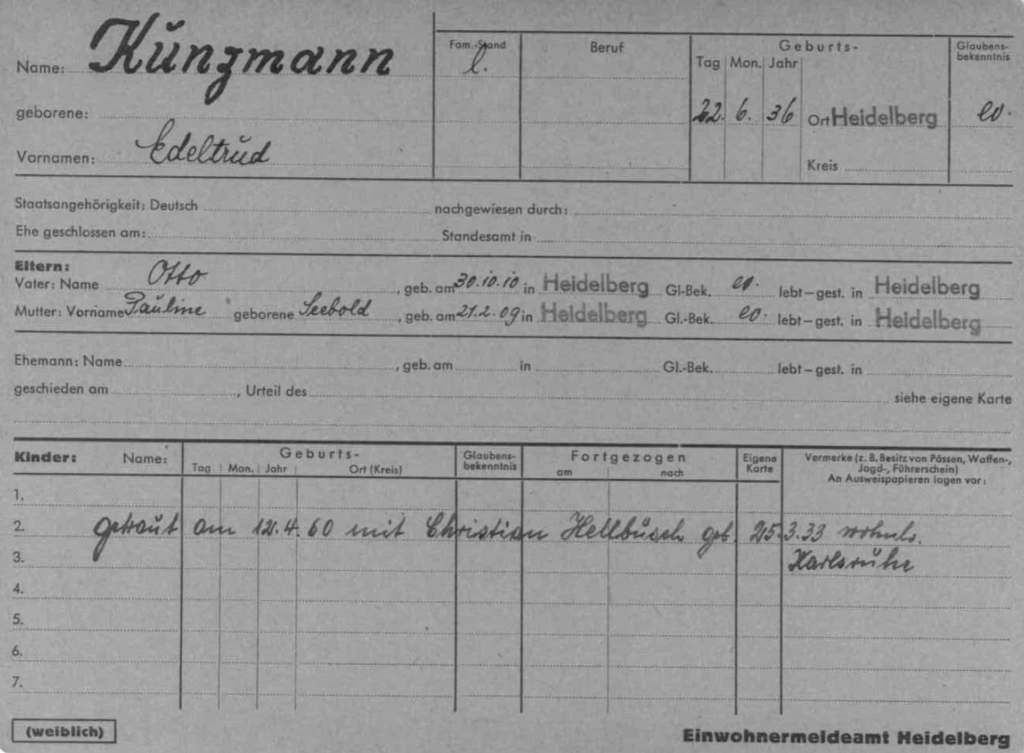 Name: Kunzmann
Fam.-Stand Beruf Geburts- Glaubens-
bekenntnis
Tag Mon. Jahr
l.
geborene:
22. 6. 36 Ort Heidelberg ev.
Vornamen: Edeltrud
Kreis
Staatsangehörigkeit: Deutsch nachgewiesen durch:
Ehe geschlossen am: Standesamt in
Eltern:
Vater: Name Otto , geb. am 30.10.10 in Heidelberg Gl-Bek. ev. lebt–gest. in Heidelberg
Mutter: Vorname Pauline geborene Seebold , geb. am 21.2.09 in Heidelberg Gl.-Bek. ev. lebt–gest. in Heidelberg
Ehemann: Name , geb. am in Gl.-Bek. lebt–gest. in
geschieden am , Urteil des siehe eigene Karte
Kinder: Name: Geburts- Glaubens-
bekenntnis Fortgezogen Eigene
Karte Vermerke (z. B. Besitz von Pässen, Waffen-,
Jagd-, Führerschein)
An Ausweispapieren lagen vor:
Tag Mon. Jahr Ort (Kreis) am nach
1.
2. getraut am 12.4.60 mit Christian Hellbusch geb. 25.3.33 wohnh.
3. Karlsruhe
4.
5.
6.
7.
(weiblich) Einwohnermeldeamt Heidelberg